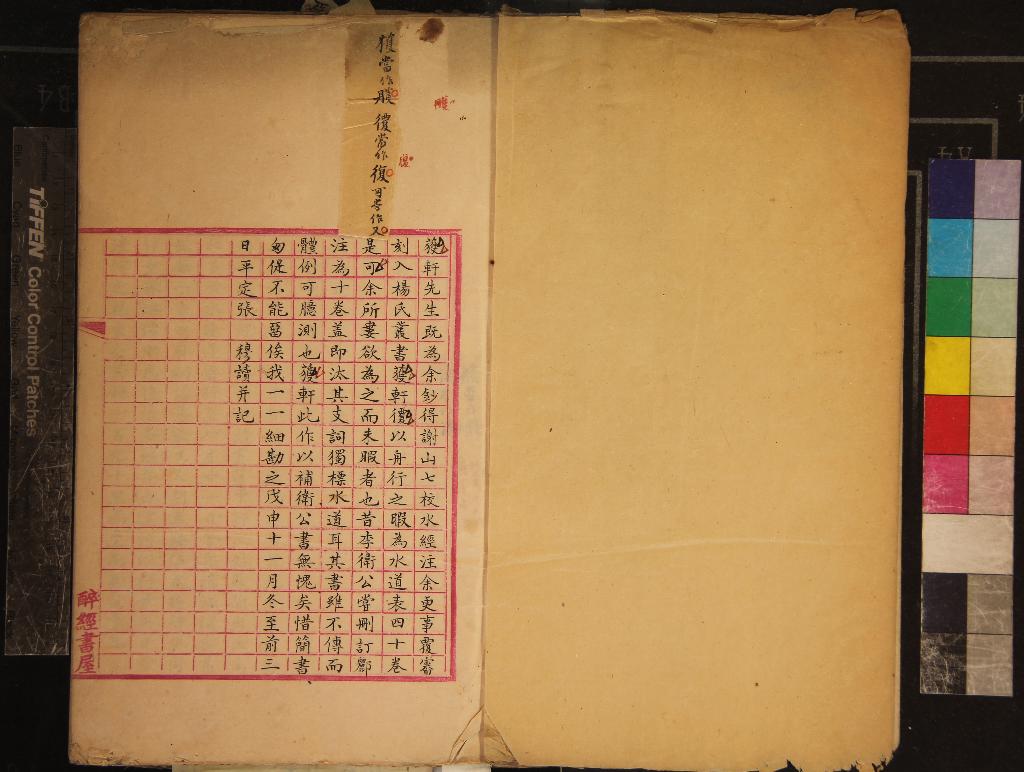 當作
當作復
當作又
艧軒先生既為余鈔得謝山七校水經注余更事覆審
刻入楊氏叢書艧軒復以舟行之暇為水道表四十卷
是可余所婁欲為之而未暇者也昔李衛公嘗刪訂酈
注為十卷蓋即汰其支詞獨標水道耳其書雖不傳而
體例可臆測也艧軒此作以補衛公書無愧矣惜簡書
匆促不能留俟我一一細勘之戊申十一月冬至前三
日平定張 穆讀并記
醉經書屋
TIFFEN Color Control Patches
A4